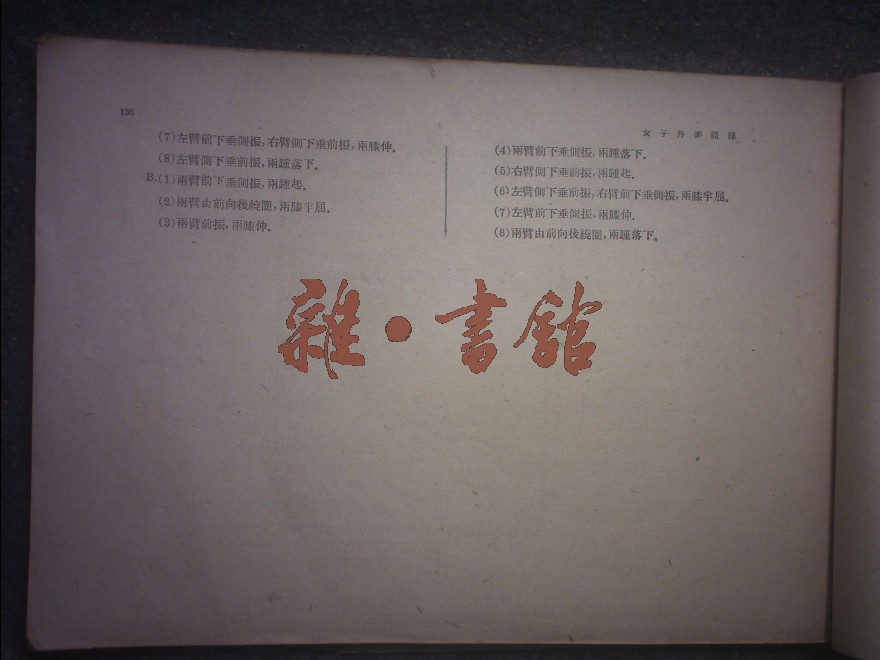 136
女子丹麥體操
(7)左臂前下垂側振，右臂側下垂前振，兩膝伸。
(8)左臂側下垂前振，兩踵落下。
B.(1)兩臂前下垂側振，兩踵起。
(2)兩臂由前向後繞圈，兩膝半屈。
(3)兩臂前振，兩膝伸。
(4)兩臂前下垂側振，兩踵落下。
(5)右臂側下垂前振，兩踵起。
(6)左臂側下垂前振，右臂前下垂側振，兩膝半屈。
(7)左臂前下垂側振，兩膝伸。
(8)兩臂由前向後繞圈，兩踵落下。
雜·書館